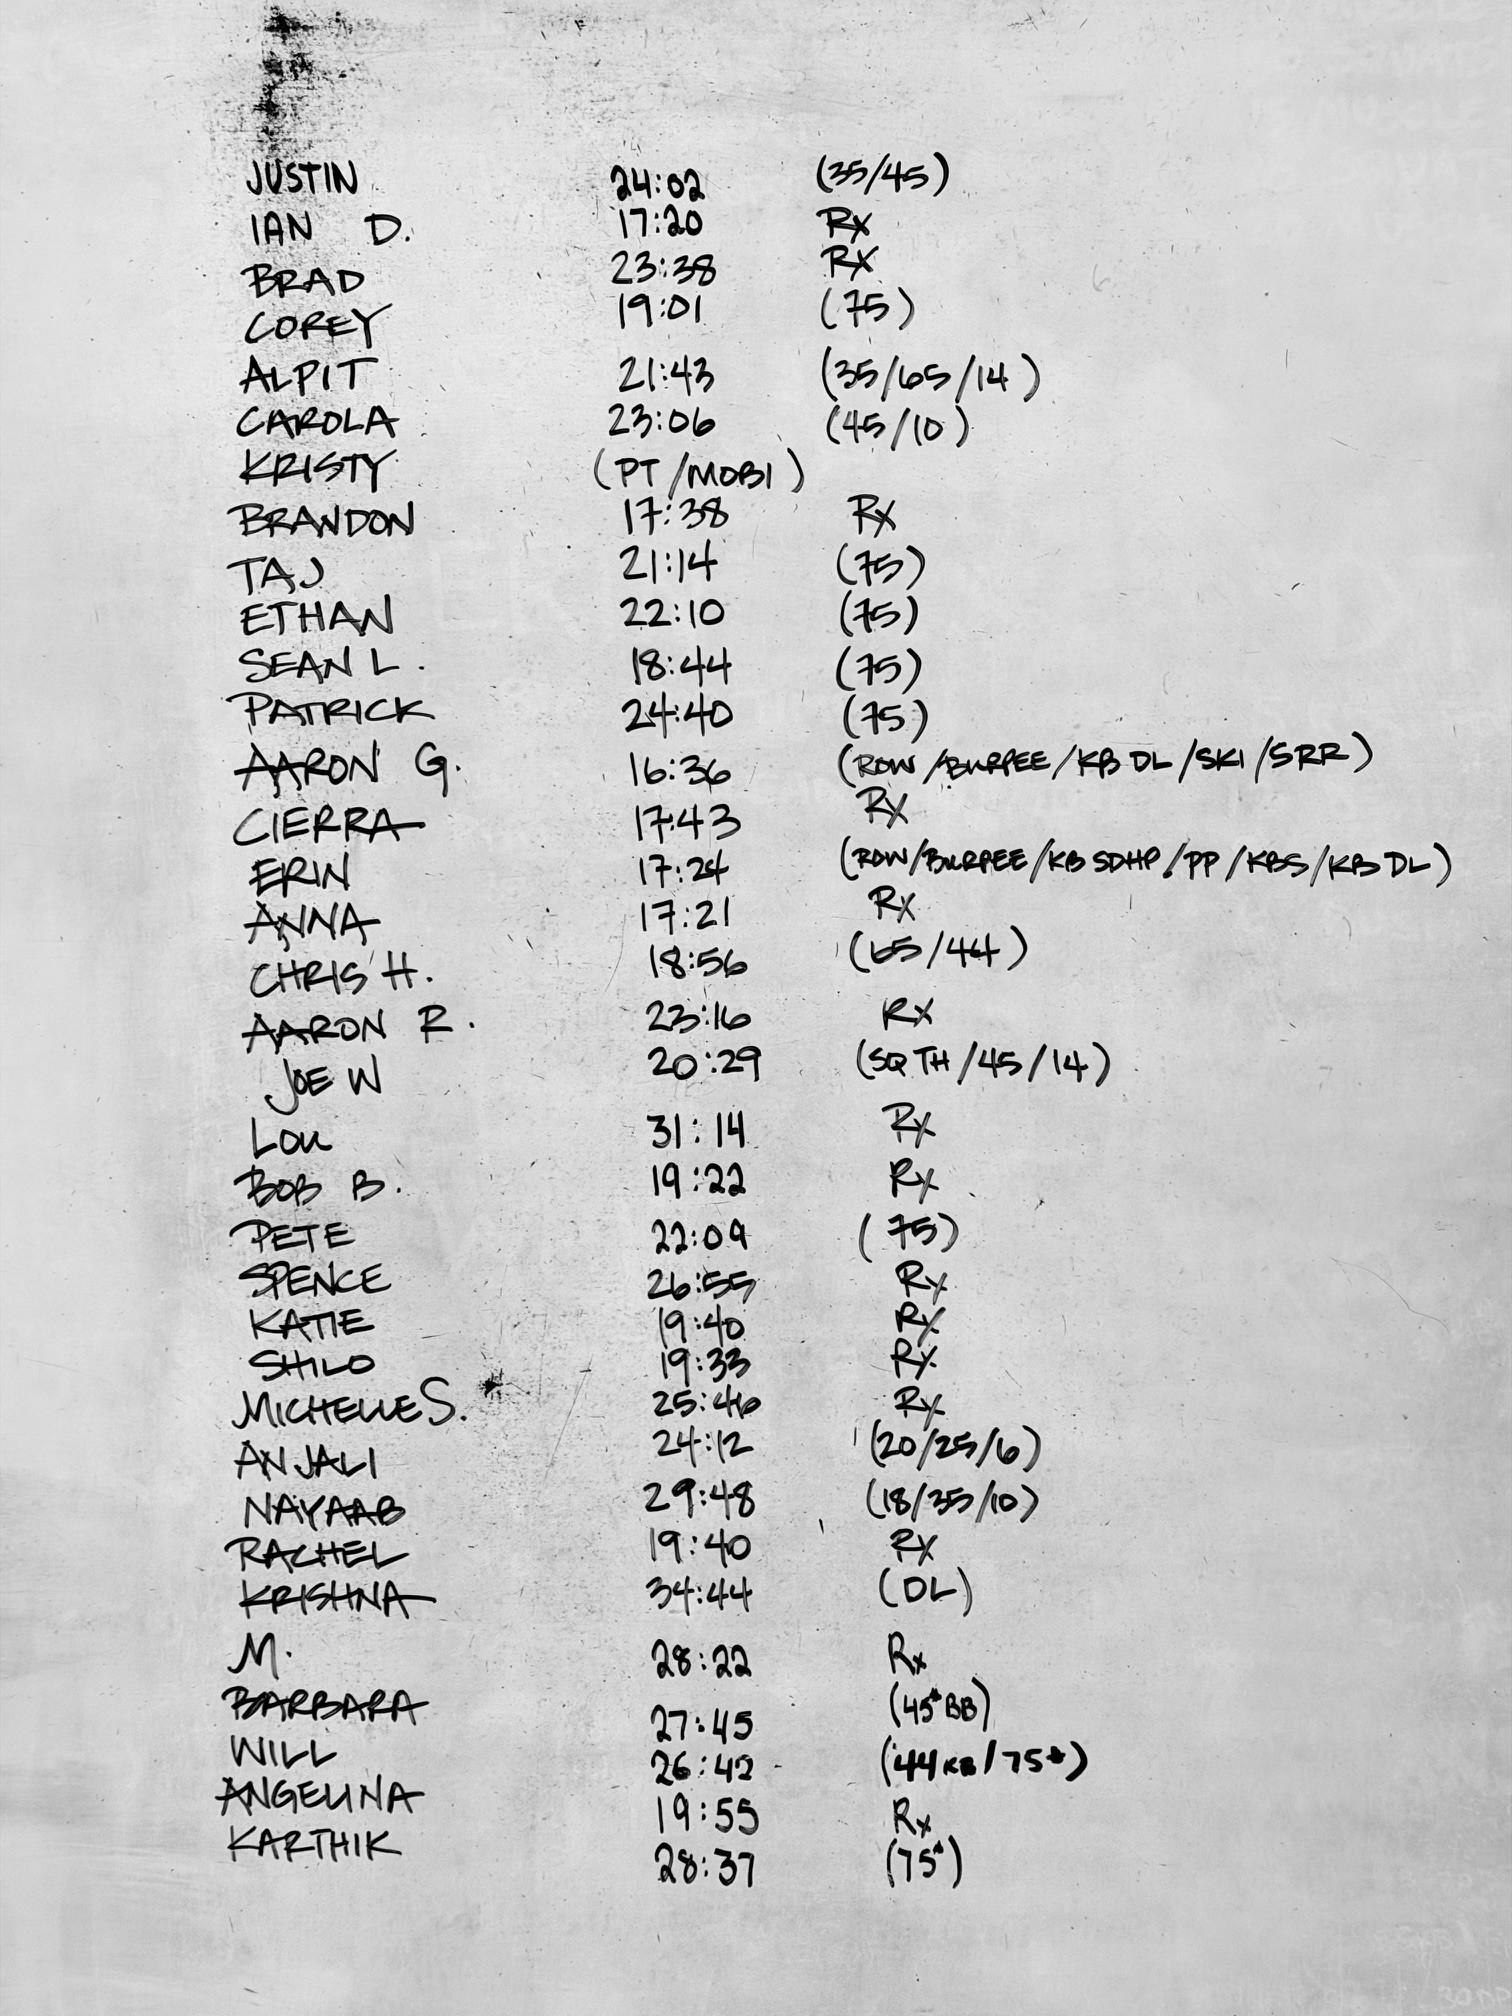 JUSTIN 24:02 (35/45)
IAN D. 17:20 Rx
BRAD 23:38 Rx
COREY 19:01 (75)
ALPIT 21:43 (35/65/14)
CAROLA 23:06 (45/10)
KRISTY (PT/MOBI)
BRANDON 17:38 Rx
TAJ 21:14 (75)
ETHAN 22:10 (75)
SEAN L. 18:44 (75)
PATRICK 24:40 (75)
AARON G. 16:36 (ROW/BURPEE/KB DL/SKI/SRR)
CIERRA 17:43 Rx
ERIN 17:24 (ROW/BURPEE/KB SDHP/PP/KBS/KB DL)
ANNA 17:21 Rx
CHRIS H. 18:56 (65/44)
AARON R. 23:16 Rx
JOE W 20:29 (SQ TH/45/14)
LOU 31:14 Rx
BOB B. 19:22 Rx
PETE 22:09 (75)
SPENCE 26:55 Rx
KATIE 19:40 Rx
SHILO 19:33 Rx
MICHELLE S. 25:46 Rx
ANJALI 24:12 (20/25/6)
NAYAAB 29:48 (18/35/10)
RACHEL 19:40 Rx
KRISHNA 34:44 (DL)
M. 28:22 Rx
BARBARA 27:45 (45# BB)
WILL 26:42 (44KB/75#)
ANGELINA 19:55 Rx
KARTHIK 28:37 (75#)